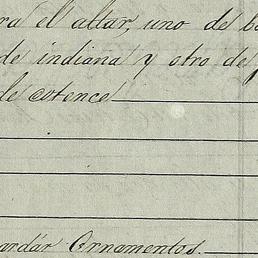 ra el altar, uno de
de indiana y otro de
de cotence
ardar Ornamentos.